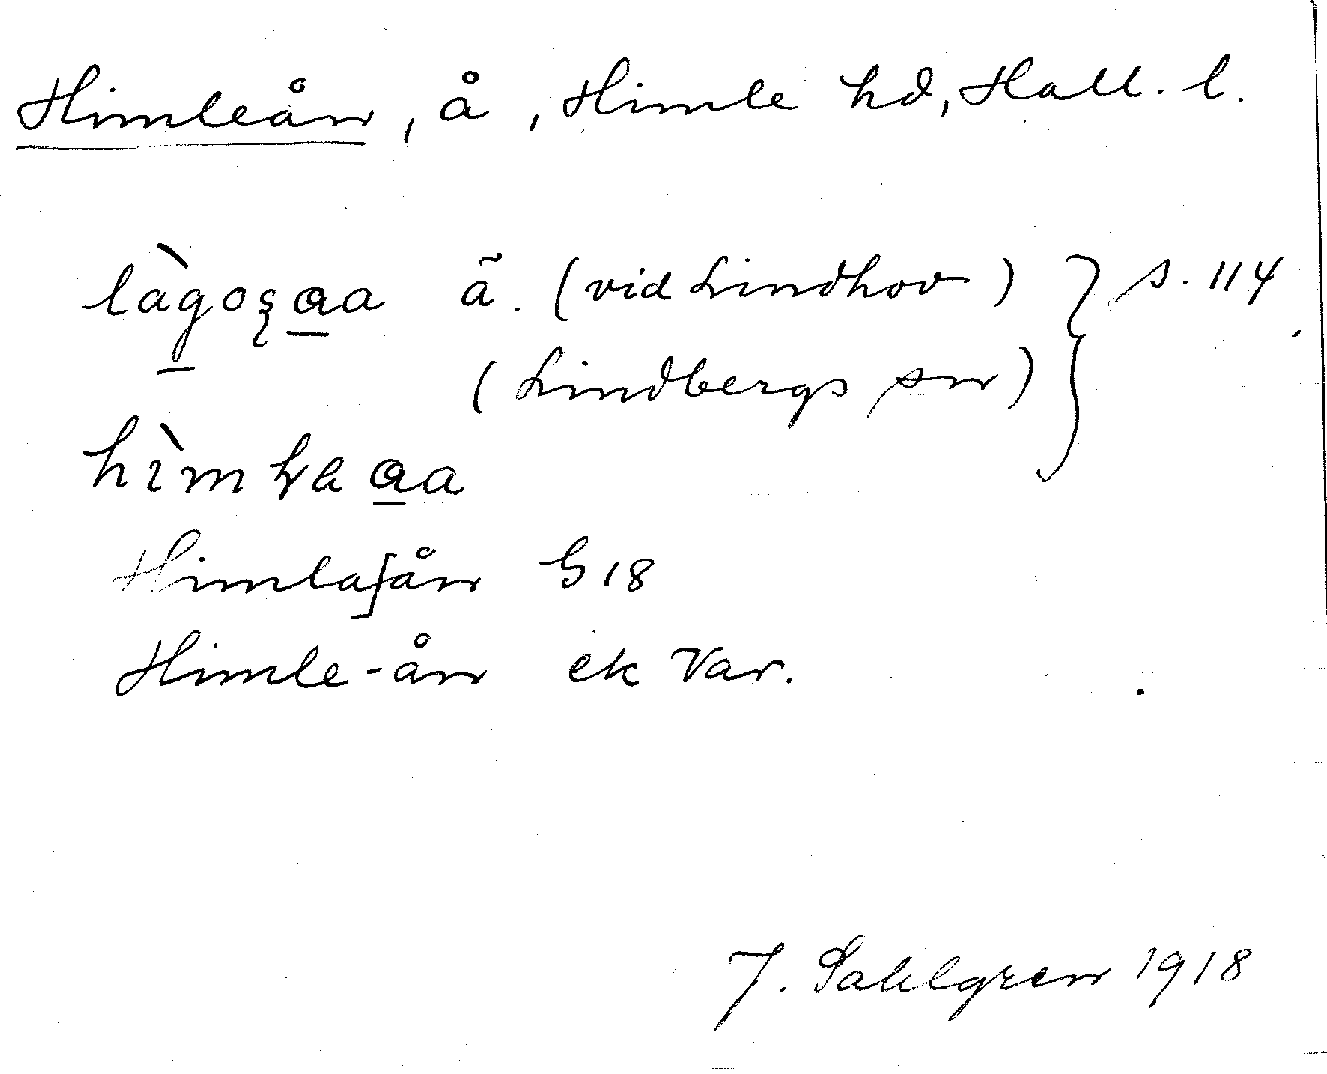 Himleån, å, Himle hd, Hall. l.
làgoʂaa ã. (vid Lindhov) } s. 114
(Lindbergs sn)
hìmɬaaa
Himla[ån G 18
Himle-ån ek Var.
J. Sahlgren 1918